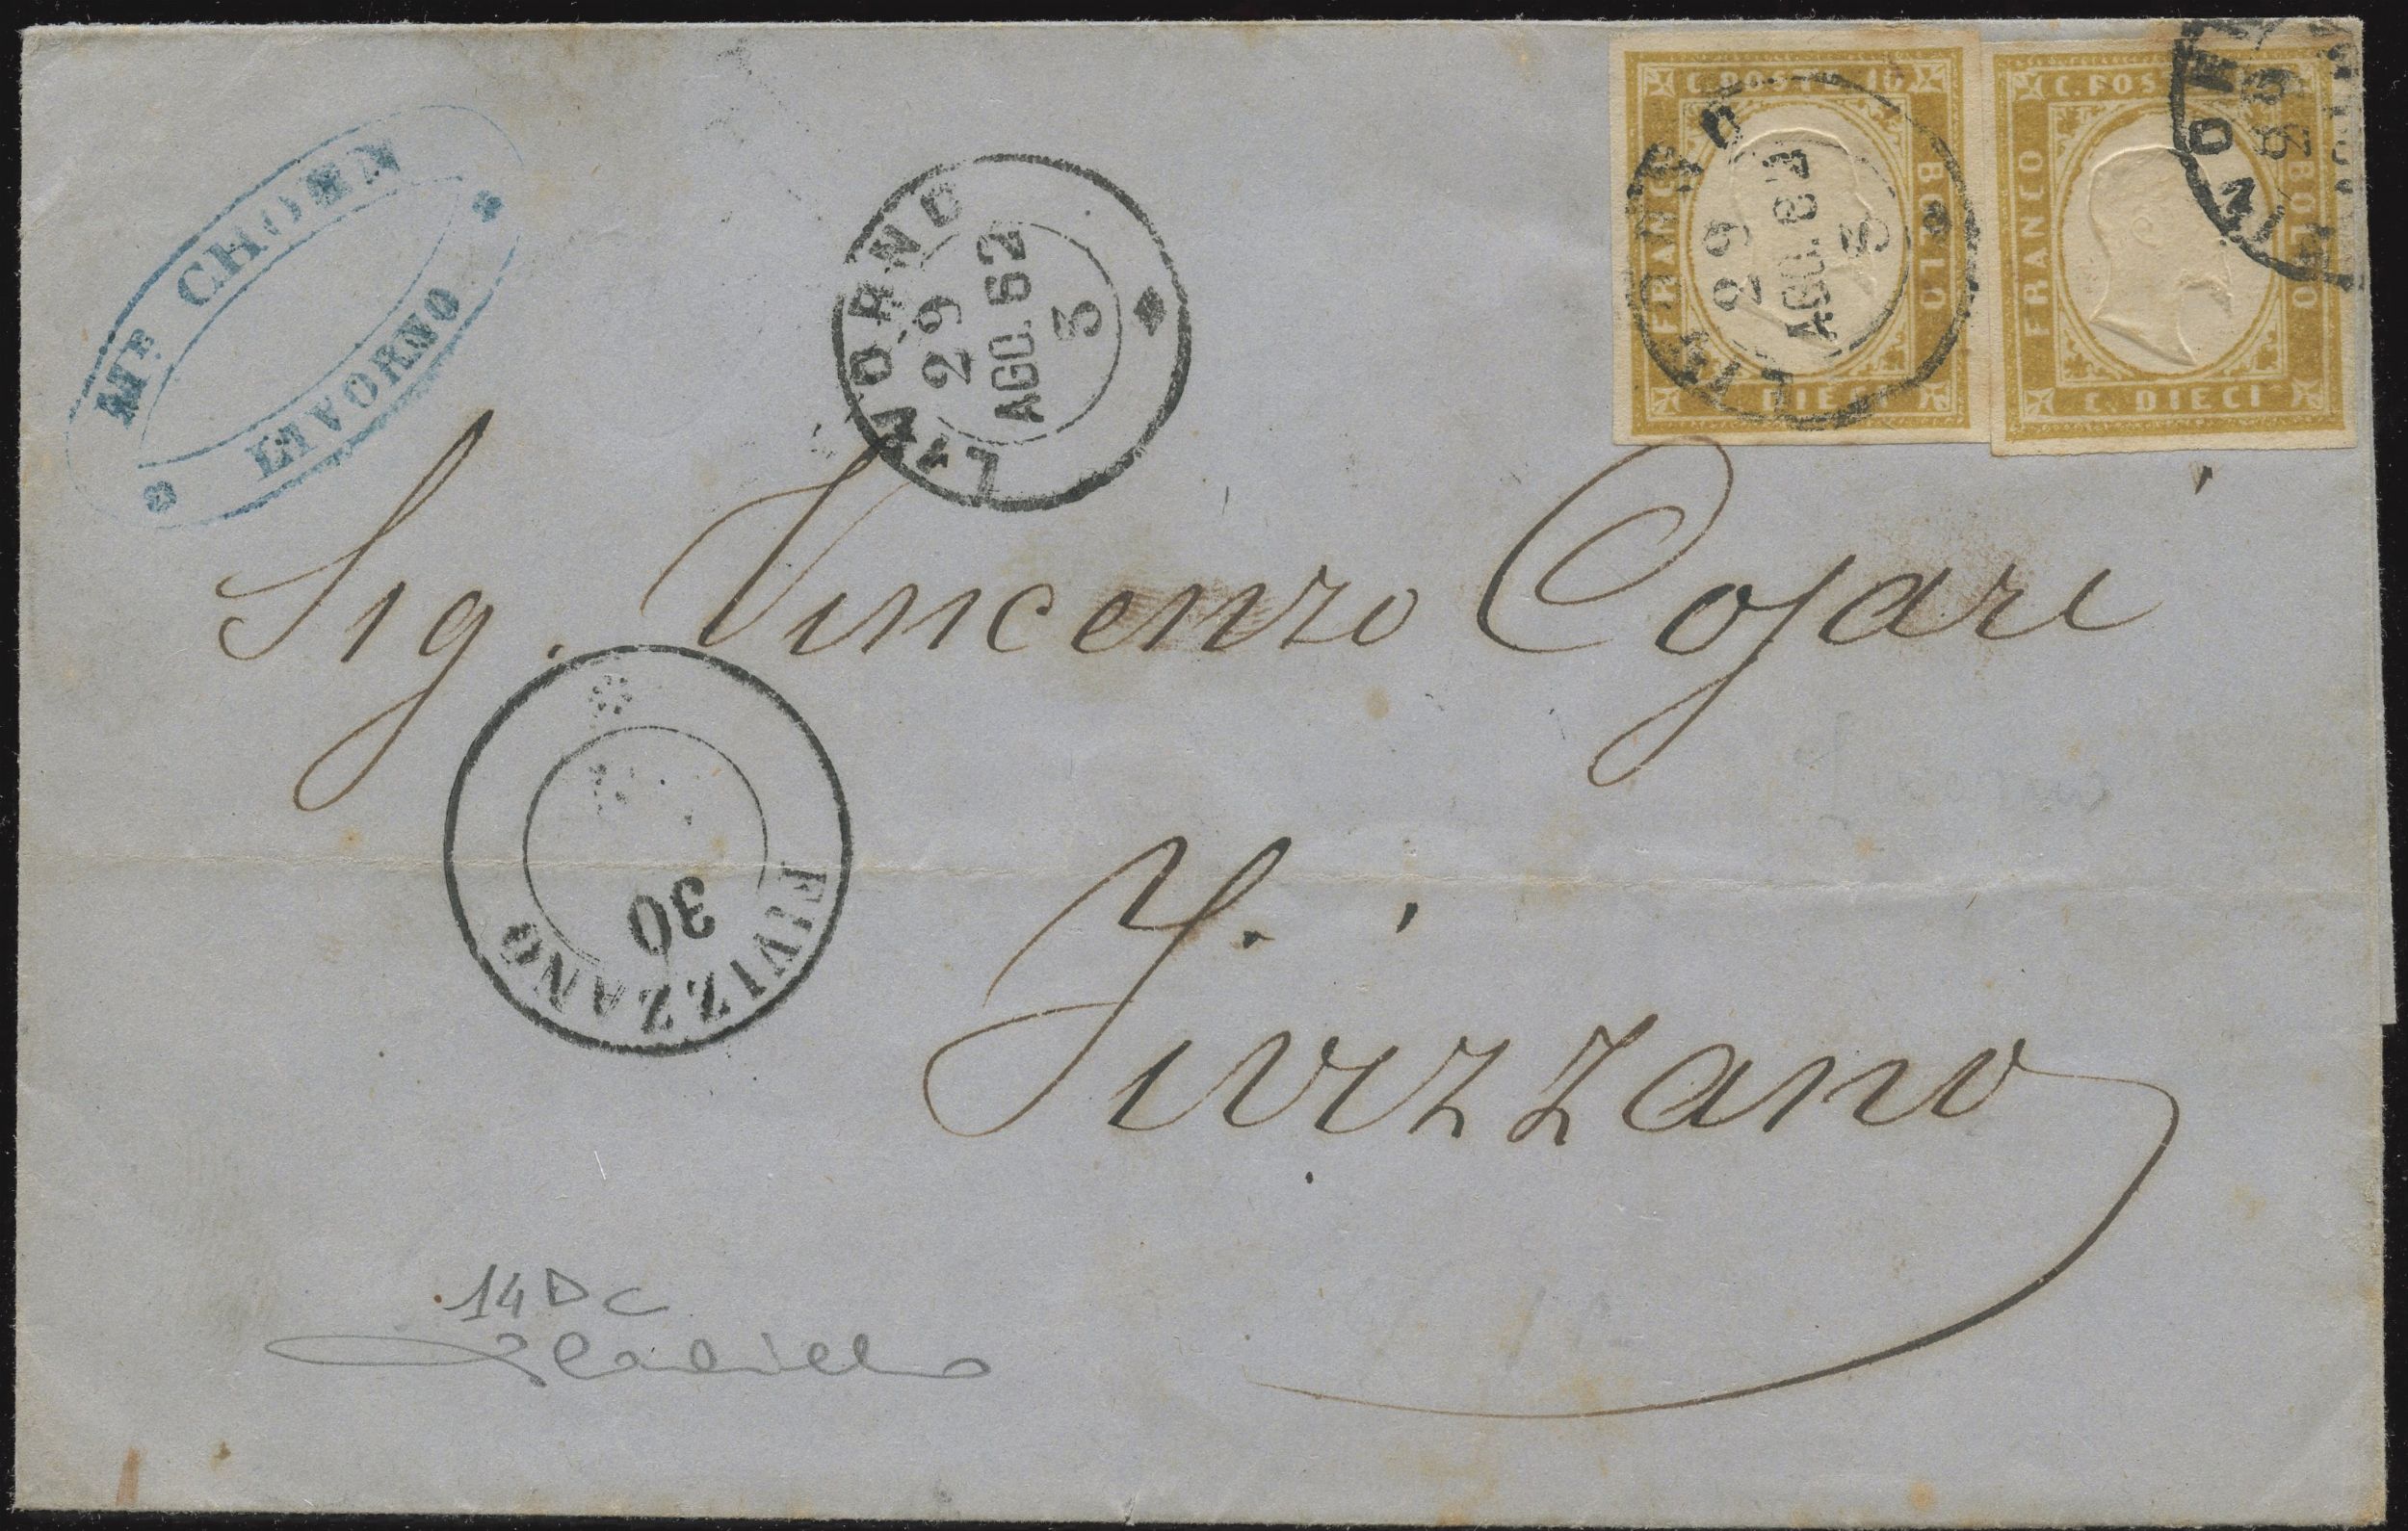 Mse CHOEN
LIVORNO
LIVORNO
29
AGO. 62
3
C. POSTE 10
FRANCO
BOLLO
C. DIECI
LIVORNO
29
AGO. 62
3
C. POSTE
FRANCO
BOLLO
C. DIECI
LIVORNO
Sig. Vincenzo Cojari
Fivizzano
FIVIZZANO
30
14 D C